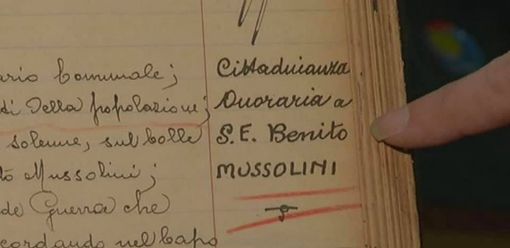 ario Comunale;
di della popolazione;
solenne, sul bolle
to Mussolini;
de Guerra che
cordando nel Capo
Cittadinanza
Onoraria a
S.E. Benito
MUSSOLINI